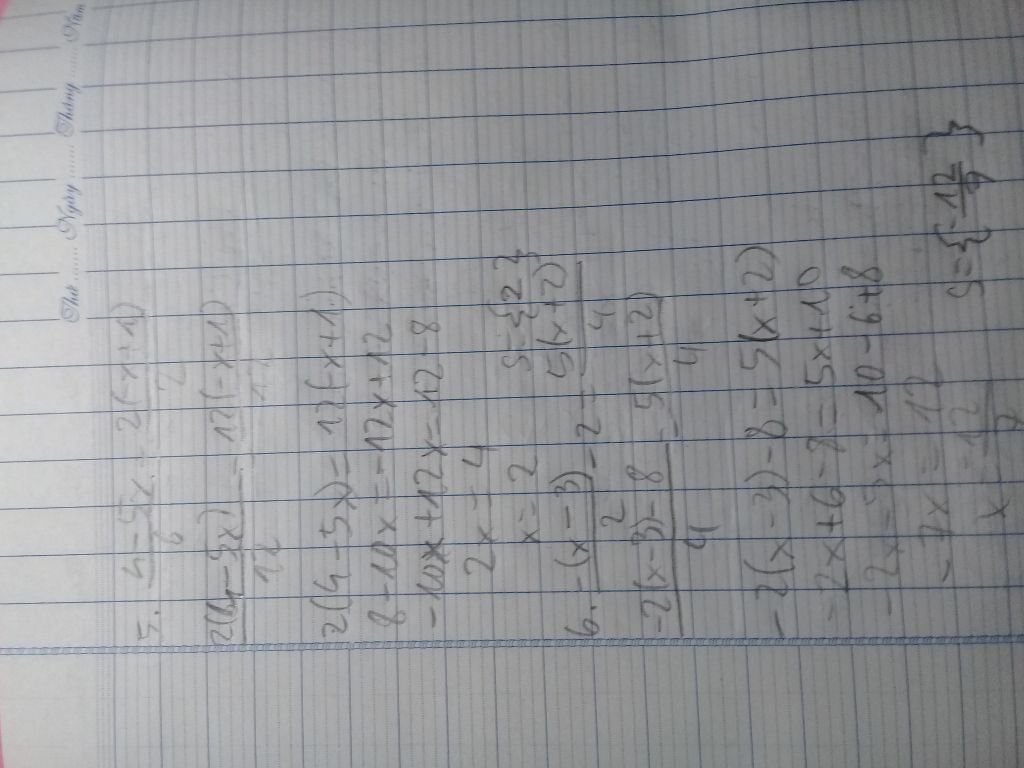 Thứ ...... Ngày ...... Tháng ...... Năm
5. (4-5x)/6 = 2(-x+1)/2
2(4-5x)/12 = 12(-x+1)/12
2(4-5x) = 12(-x+1)
8-10x = -12x+12
-10x+12x = 12-8
2x = 4
x = 2 S={2}
6. -(x-3)/2 - 2 = 5(x+2)/4
-2(x-3)-8/4 = 5(x+2)/4
-2(x-3)-8 = 5(x+2)
-2x+6-8 = 5x+10
-2x-5x = 10-6+8
-7x = 12
x = -12/7 S={-12/7}